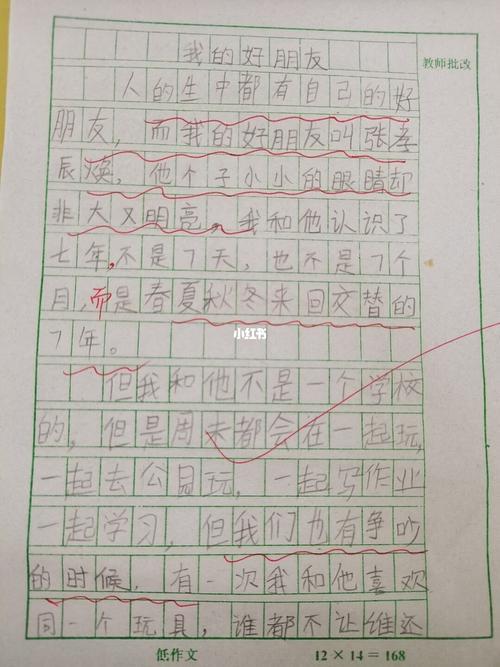 我的好朋友
教师批改
人的生中都有自己的好
朋友，而我的好朋友叫张孝
辰焕，他个子小小的眼睛却
非大又明亮。我和他认识了
七年，不是7天，也不是7个
月，而是春夏秋冬来回交替的
7年。
小红书
但我和他不是一个学校
的，但是周末都会在一起玩，
一起去公园玩，一起写作业
一起学习，但我们也有争吵
的时候，有一次我和他喜欢
同一个玩具，谁都不让谁还
低作文 12×14=168